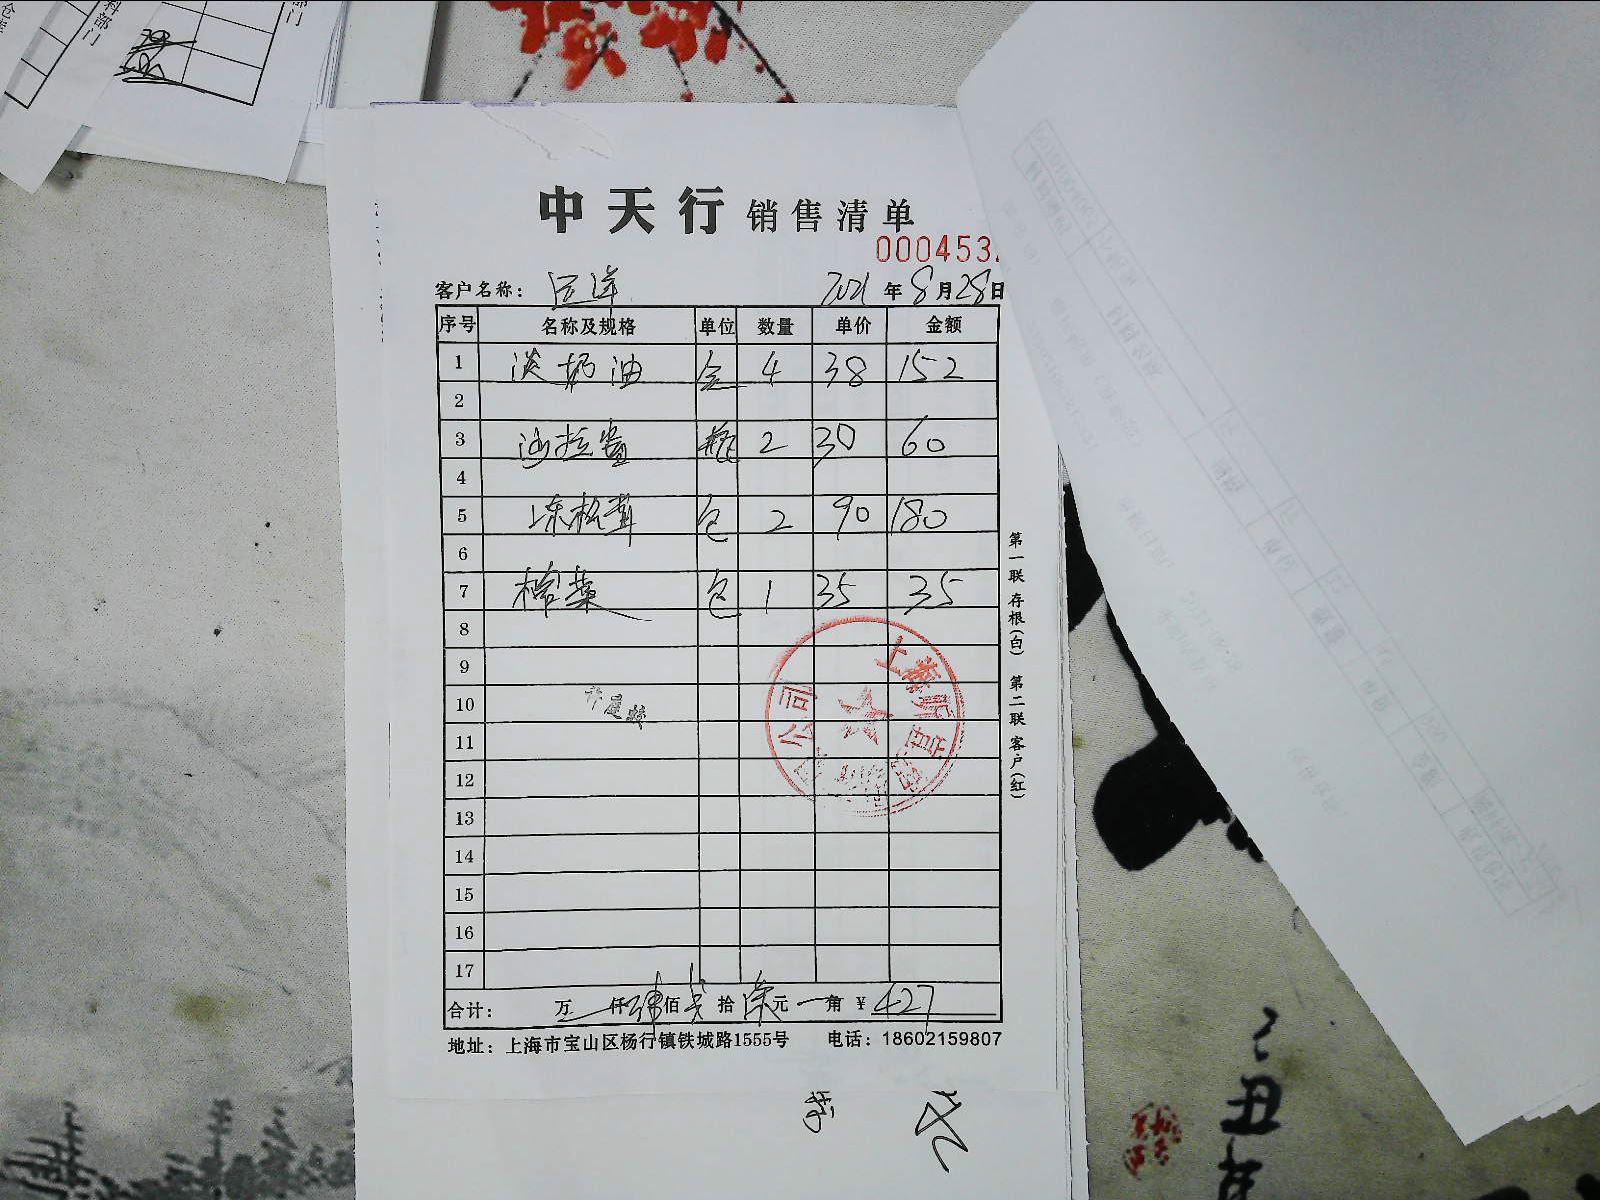 科部门
中天行 销售清单
000453
客户名称: 远洋 2021 年 8 月 28 日
序号 名称及规格 单位 数量 单价 金额
1 淡奶油 盒 4 38 152
2
3 沙拉酱 瓶 2 30 60
4
5 冻松茸 包 2 90 180
6
7 榨菜 包 1 35 35
8
9
10
11
12
13
14
15
16
17
上海 公司
合计: 万 仟 肆 佰 贰 拾 柒 元 角 ¥ 427
地址: 上海市宝山区杨行镇铁城路1555号 电话: 18602159807
第一联 存根(白) 第二联 客户(红)
丑